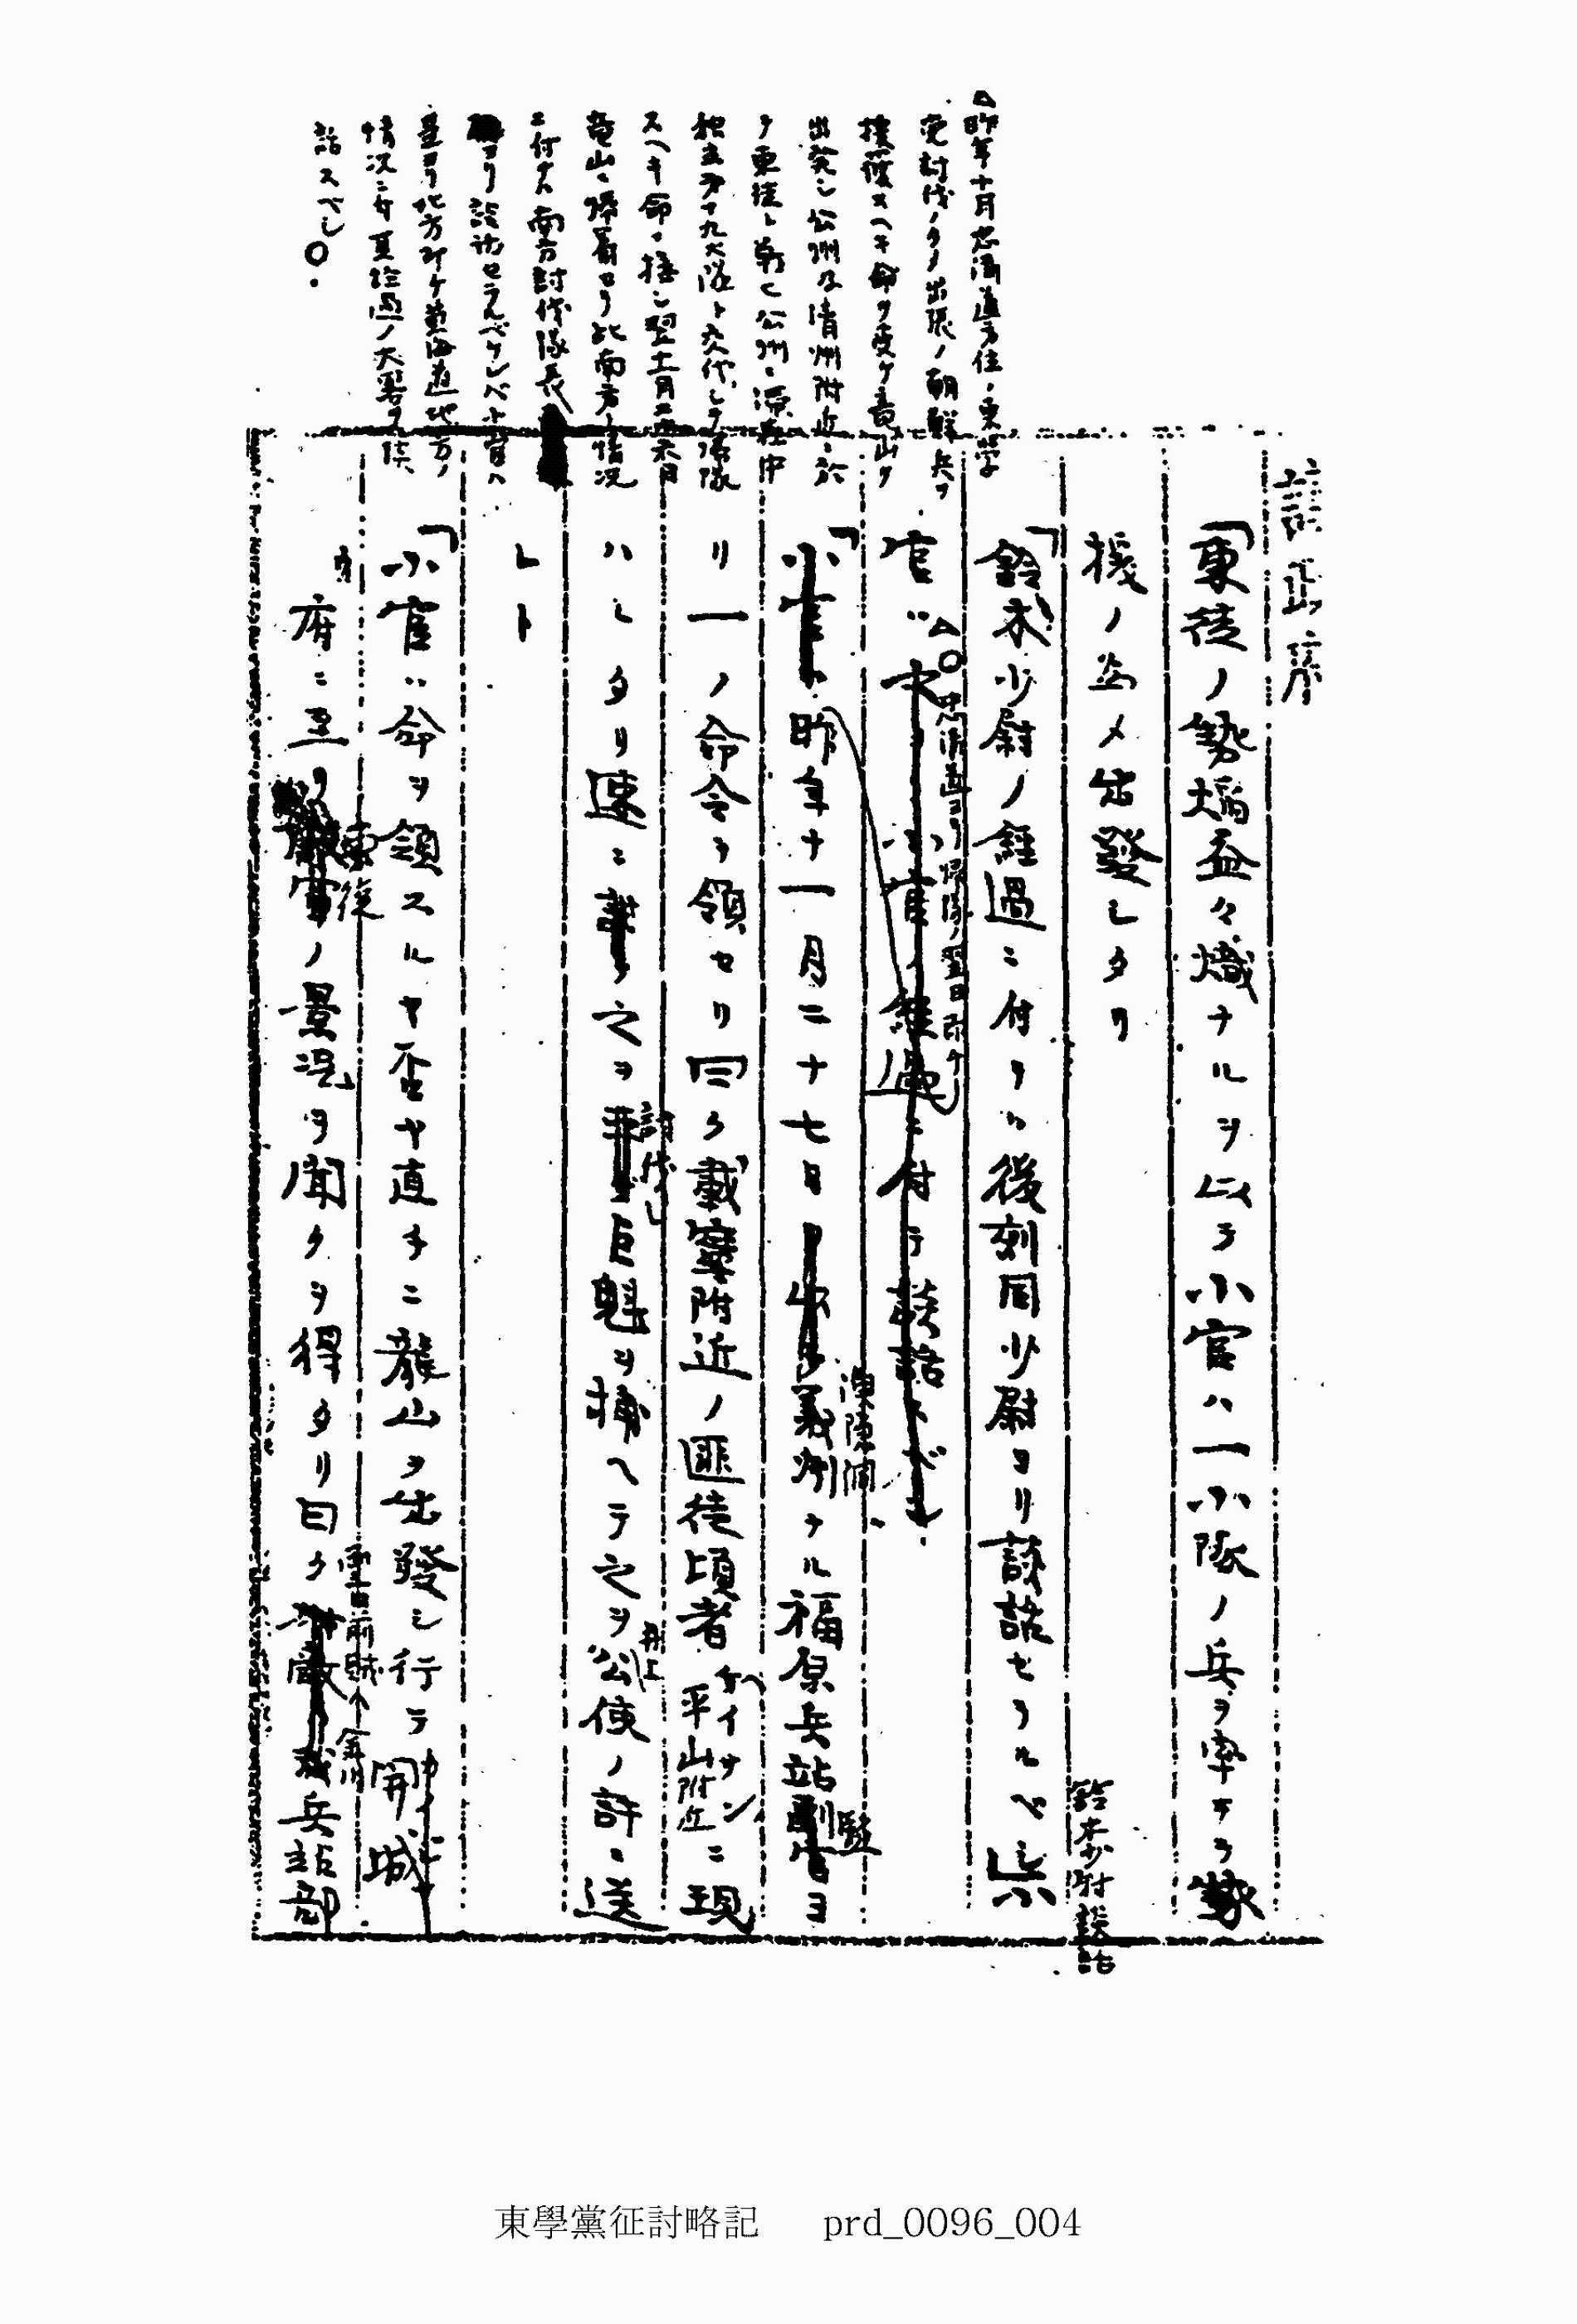 訂正序
「東徒ノ勢焔益々熾ナルヲ以テ小官ハ一小隊ノ兵ヲ率ヰテ
援ノ為メ出發シタリ
鈴木少尉談話
「鈴木少尉ノ経過ニ付テハ後刻同少尉ヨリ談話セラルベシ小
官ハ
小官ノ経過ニ付テ談話スベシ
△昨年十月忠清道方位ノ東学
党討伐ノタメ出張ノ朝鮮兵ヲ
援護スヘキ命ヲ受ケ竜山ヲ
出発シ公州及清州附近ニ於
テ東徒ト戦ヒ公州ニ滞在中
独立第十九大隊ト交代シテ帰隊
スヘキ命ニ接シ翌十一月二十六日
竜山ニ帰着セリ此南方ノ情況
ニ付テハ南方討伐隊長
ヨリ談話セラルベケレバ小官ハ
是ヨリ北方即ケ黄海道地方ノ
情況ニ付其経過ノ大畧ヲ陳
話スベシ〇
△〇忠清道ヨリ帰隊ノ翌日即ケ
「小官ハ昨年十一月二十七日
義州ナル福原兵站監ヨ
リ一ノ命令ヲ領セリ曰ク載寧附近ノ匪徒頃者
ヘイサン
平山附近ニ現
ハレタリ速ニ之ヲ
討伐シ
巨魁ヲ捕ヘテ之ヲ
井上
公使ノ許ニ送
レト
「小官ハ命ヲ領スルヤ否ヤ直チニ龍山ヲ出發シ行テ開城
府ニ至リ
東徒
ノ景況ヲ聞クヲ得タリ曰ク
兵站部